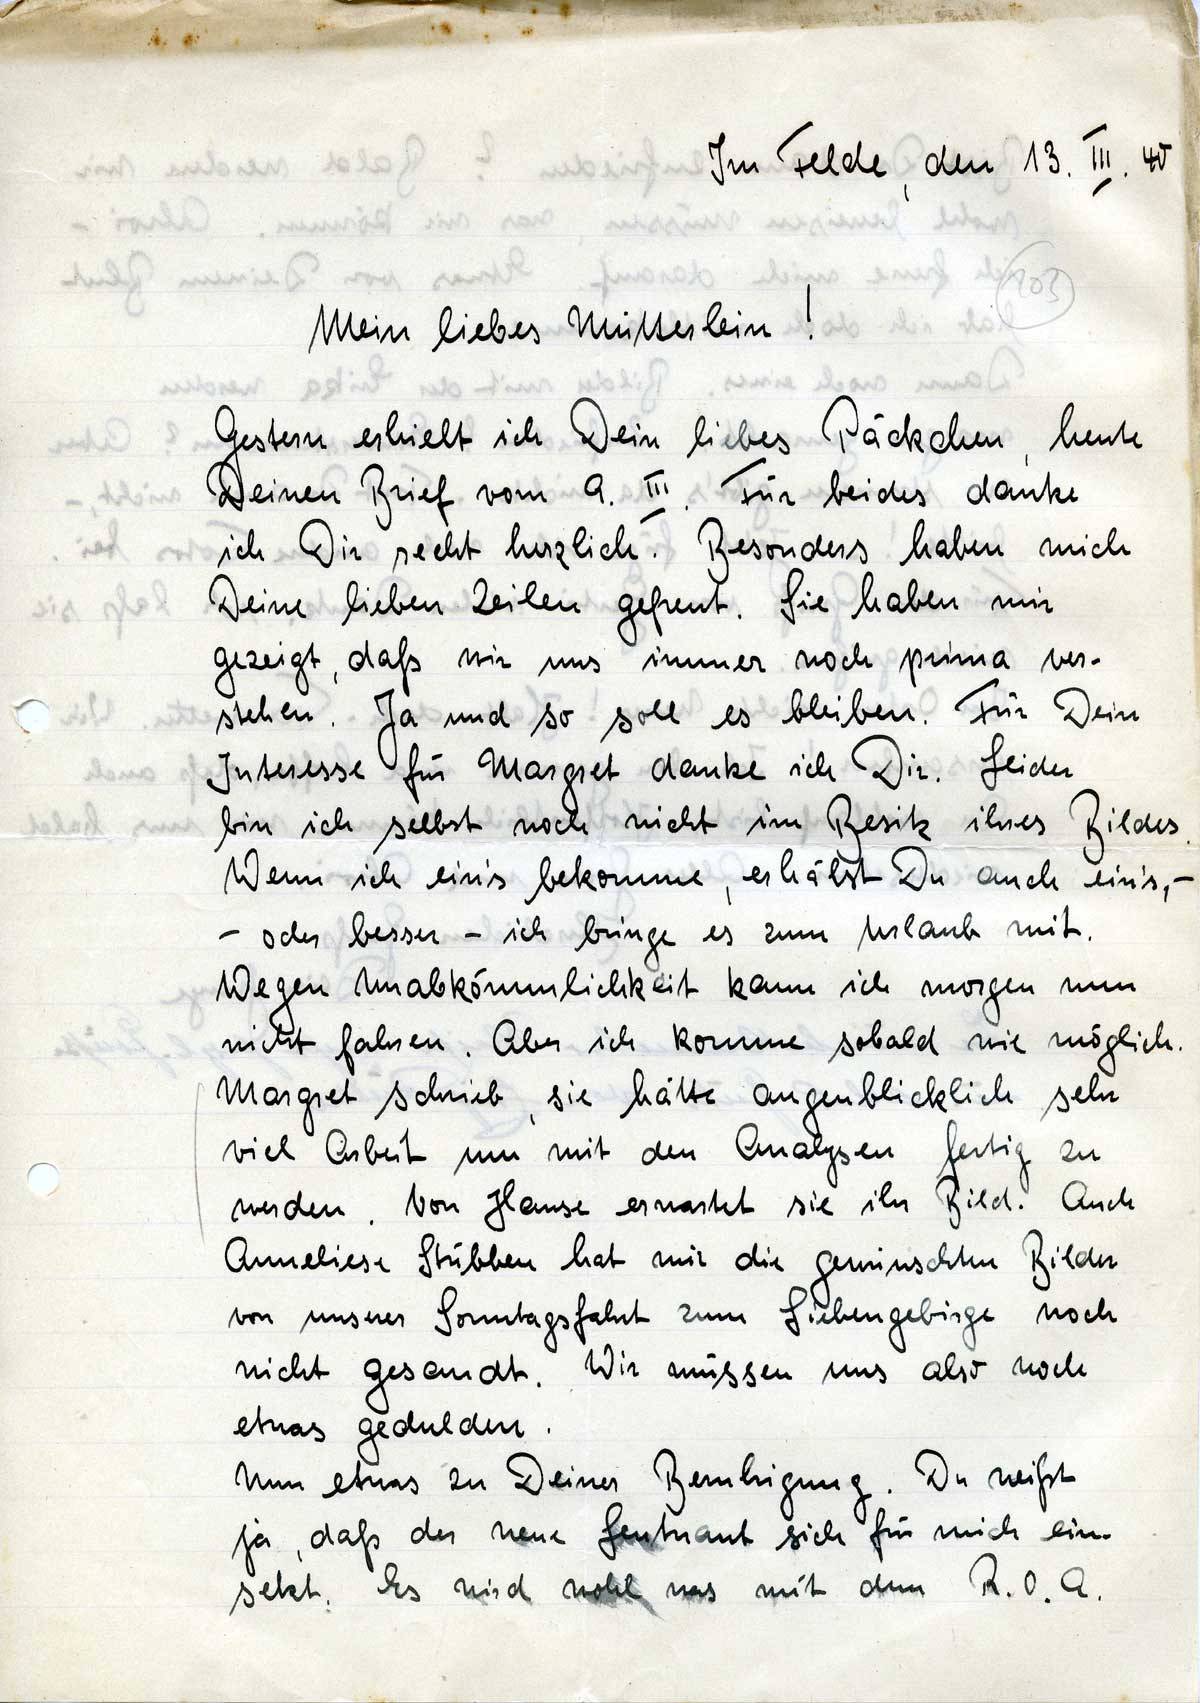 Im Felde, den 13. III. 40
203
Mein liebes Mütterlein!
Gestern erhielt ich Dein liebes Päckchen, heute
Deinen Brief vom 9. III. Für beides danke
ich Dir recht herzlich. Besonders haben mich
Deine lieben Zeilen gefreut. Sie haben mir
gezeigt, daß wir uns immer noch prima ver-
stehen. Ja und so soll es bleiben. Für Dein
Interesse für Margret danke ich Dir. Leider
bin ich selbst noch nicht im Besitz ihres Bildes.
Wenn ich ein's bekomme, erhälst Du auch ein's, –
– oder besser – ich bringe es zum Urlaub mit.
Wegen Unabkömmlichkeit kann ich morgen nun
nicht fahren. Aber ich komme sobald wie möglich.
Margret schrieb, sie hätte augenblicklich sehr
viel Arbeit um mit den Analysen fertig zu
werden. Von Hause erwartet sie ihr Bild. Auch
Anneliese Stübben hat mir die gewünschten Bilder
von unserer Sonntagsfahrt zum Siebengebirge noch
nicht gesandt. Wir müssen uns also noch
etwas gedulden.
Nun etwas zu Deiner Beruhigung. Du weißt
ja, daß der neue Leutnant sich für mich ein-
setzt. Es wird wohl was mit dem R.O.A.